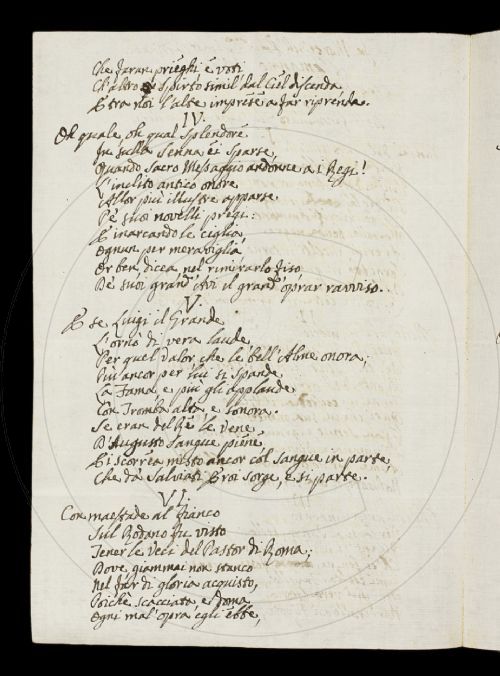 Che faran prieghi e voti
Ch'altro Spirto simil dal Ciel discenda,
E tra noi l'alte imprese a far riprenda.
IV.
Oh quale oh qual splendore
In sulla Senna ei sparse,
Quando Sacro Messaggio andonne a i Regi!
L'inclito antico onore
Allor più illustre apparse
Pe' suoi novelli pregi:
E inarcando le ciglia
Ognun per meraviglia
Or ben, dicea, nel rimirarlo fiso,
De' suoi grand'Avi il grand'oprar ravviso.
V.
E se Luigi il Grande
L'ornò di vera laude
Per quel valor che le bell'Alme onora;
Più ancor per lui si spande
La Fama e più gli applaude
Con Tromba alta e sonora.
Se eran del Re le vene
D'Augusto Sangue piene
Ei scorrea misto ancor col sangue in parte,
Che da Salviati Eroi sorge, e si parte.
VI.
Con maestade al fianco
Sul Rodano fu visto
Tener le veci del Pastor di Roma;
Dove giammai non stanco
Nel far di gloria acquisto,
Poiché scacciata e doma
Ogni mal'opra egli ebbe,